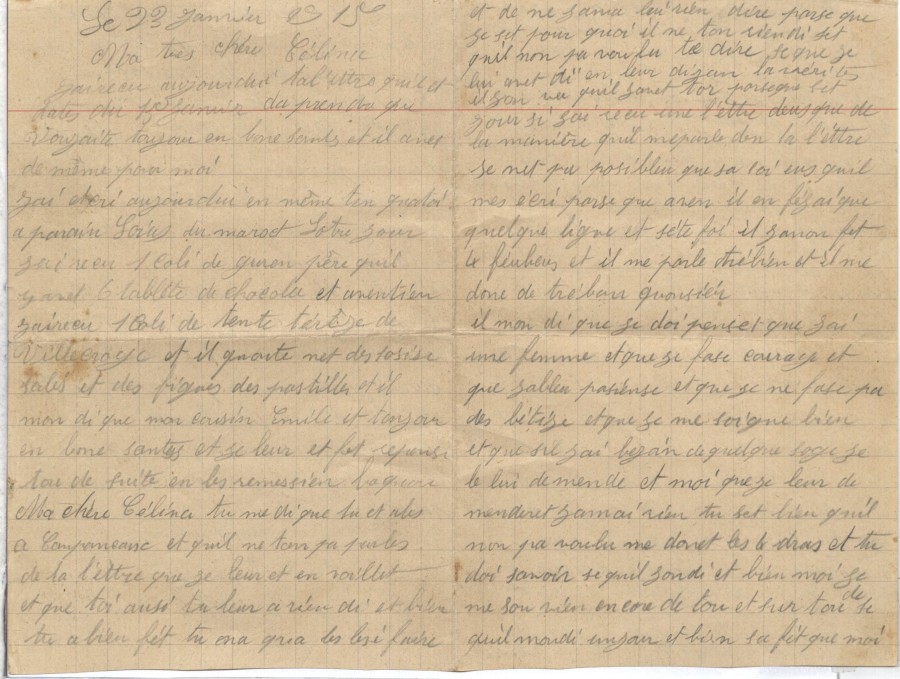 Le 22 Janvier 1915
Ma très chère Célina
jai recu aujourdui ta l'ettre quil et
dates du 15 Janvier da prendre que
vousaite toujour en bone santé et il anet
de même pour moi
jai ecri aujourdui en même tan qua toi
a parain Loius du maroct Lotre jour
jai recu 1 Coli de guron père quil
yanet 6 tablette de chocolat et aventier
jai recu 1 Coli de tente térèze de
Villecroze et il quaute net des sosise
sales et des figues des pastilles et il
mon di que mon cousin Emile et toujour
en bone santes et je leur et fet reponse
tou de suite en les remersien
Ma chère Célina tu me di que tu et ales
a et quil ne ton pa parles
de la l'êttre que je leur et envoillet
et que toi aussi tu leur a rien di et bien
tu a bien fét tu ona qua les lesé faire
et de ne jamai lui rien dire parse que
se set pour quoi il ne ton riendi set
quil non pa voulu te dire se que je
lui anet di en leur dizan la vérites
il zon vu quil zanet tor parseque set
jour si jai recu une l'êttre deusque de
la manière quil me parle den la l'êttre
se net pa posibleu que sa soi eus quil
mes ecri parse que aven il en fezai que
quelque ligne et sete foi il zanon fet
4 feubeus et il me parle trébien et il me
done de trébon quonsiér
il mon di que je doi penset que jai
une femme et que je fase courage et
que jableu pasiense et que je ne fase pa
des bétize et que je me soigne bien
et que sie jai bezoin de quelque soze je
le lui demende et moi que je leur de
menderet jamai rien tu set bien quil
non pa voulu me donet les 6 dras et tu
doi savoir se quil zondi et bien moi je
me souvien encore de tou et sur tou de se
quil mondi unjour et bien sa fét que moi